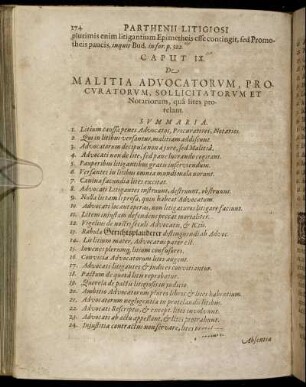 174 PARTHENII LITIGIOSI
plurimis enim litigantium Epimetheis esse contingit, sed Promo-
theis paucis, inquit Bud. in for. p. 122
CAPUT IX.
De
MALITIA ADVOCATORVM, PRO-
CVRATORVM, SOLLICITATORVM ET
Notariorum, quâ lites pro-
telant.
SVMMARIA.
1. Litium caussa penes Advocatos, Procuratores, Notarios.
2. Qui in litibus versantur, malitiam addiscunt.
3. Advocatorum decipula non à jure, sed malitiâ.
4. Advocati non de lite, sed pane lucrando cogitant.
5. Pauperibus litigantibus gratis inserviendum.
6. Versantes in litibus omnia mundi mala norunt.
7. Canina facundia lites excitat.
8. Advocati litigantes instruunt, destruunt, obstruunt.
9. Nulla is tam lepresa, quin habeat Advocatum.
10. Advocati locant operas, cum litigatores litigare faciunt.
11. Litem injustam defendens peccat mortaliter.
12. Virgilius de nostri seculi Advocatis, &
13. Rabula Gerichtsplauderer distinguendi ab Advoc.
14. Lis litium mater, Advocatus pater est.
15. Juvenes plerunque litium confusores.
16. Convitia Advocatorum lites augent.
17. Advocati litigantes & judices convitiantur.
18. Pactum de quota litis reprobatur.
19. Querela de pactis litigiosis in judicio.
20. Ambitio Advocatorum plures libros & lites habentium.
21. Advocatorum negligentia in protelandis litibus.
22. Advocati Rescriptis, & except. lites involvunt.
23. Advocati ab actu appellant, & lites protrahunt.
24. Injustitia contractus non servare, lites
Absentia